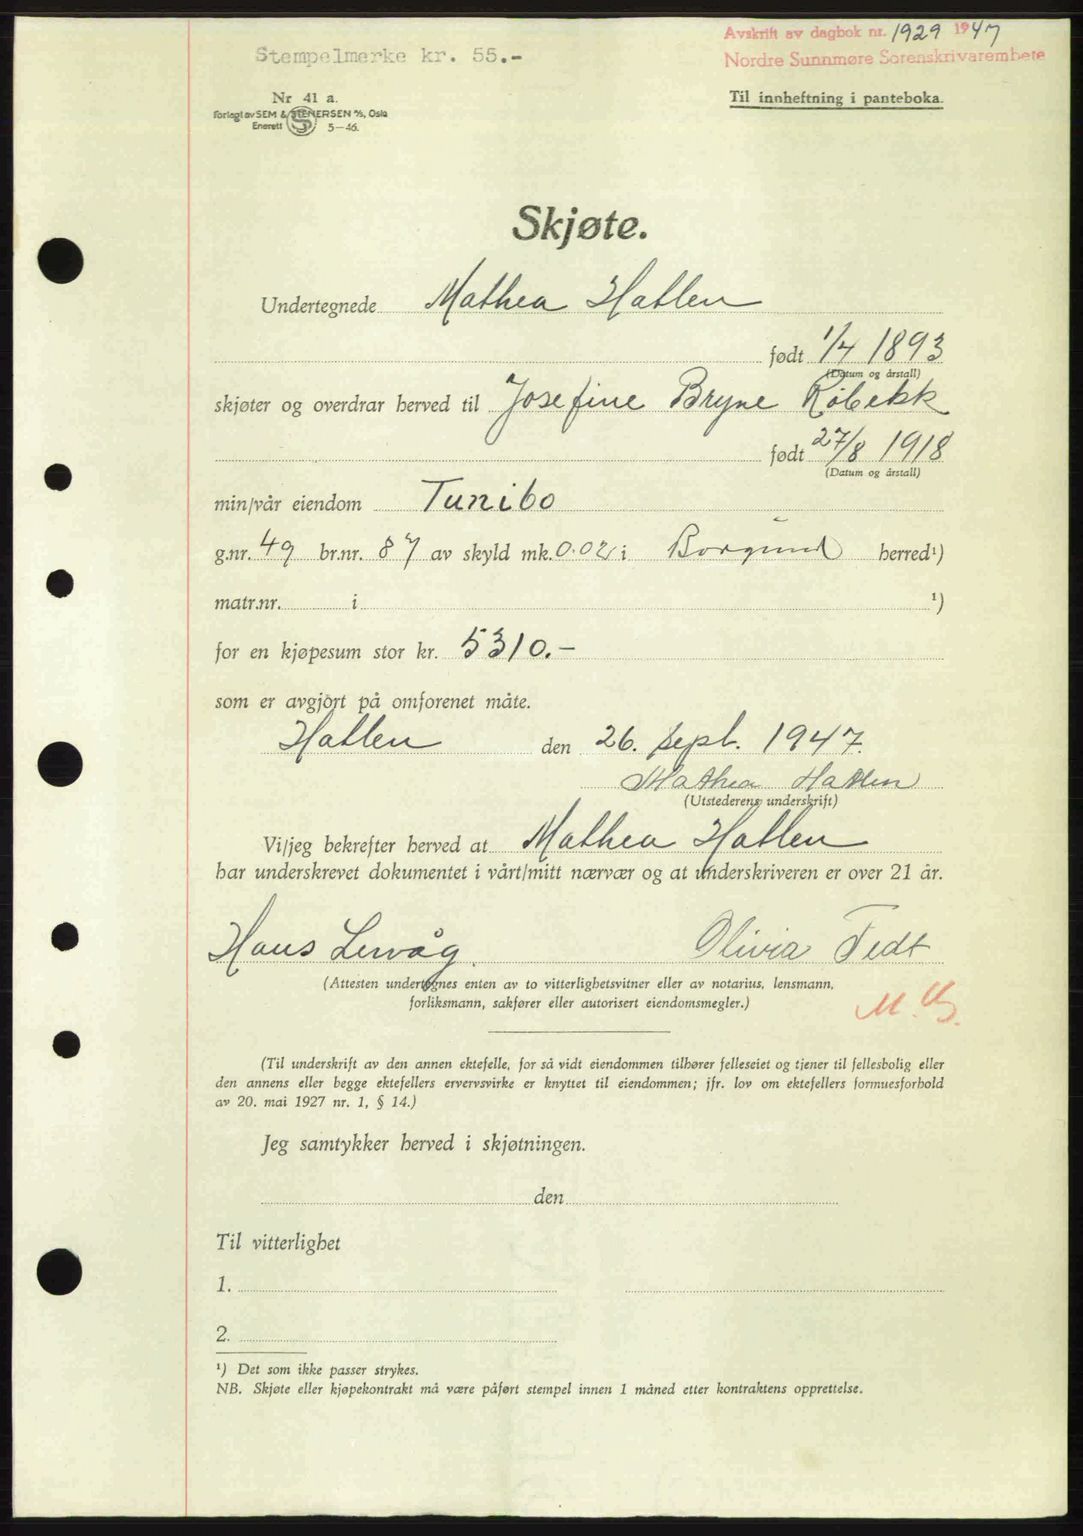 Avskrift av dagbok nr. 1929 1947
Stempelmerke kr. 55.-
Nordre Sunnmøre Sorenskrivarembete
Nr 41 a.
Til innheftning i panteboka.
Forlagt av SEM & STENERSEN A/S, Oslo
Enerett S 5-46.
Skjøte.
Undertegnede Mathea Hatlen
født 1/4 1893
(Datum og årstall)
skjøter og overdrar herved til Josefine Bryne Røbekk
født 27/8 1918
(Datum og årstall)
min/vår eiendom Tunibo
g.nr. 49 br.nr. 87 av skyld mk. 0.02 i Borgund herred¹)
matr.nr. i ¹)
for en kjøpesum stor kr. 5310.-
som er avgjort på omforenet måte.
Hatlen den 26. sept. 1947.
Mathea Hatlen
(Utstederens underskrift)
Vi/jeg bekrefter herved at Mathea Hatlen
har underskrevet dokumentet i vårt/mitt nærvær og at underskriveren er over 21 år.
Hans Lervåg. Olivia Tedt
(Attesten undertegnes enten av to vitterlighetsvitner eller av notarius, lensmann,
forliksmann, sakfører eller autorisert eiendomsmegler.)
(Til underskrift av den annen ektefelle, for så vidt eiendommen tilhører felleseiet og tjener til fellesbolig eller
den annens eller begge ektefellers ervervsvirke er knyttet til eiendommen; jfr. lov om ektefellers formuesforhold
av 20. mai 1927 nr. 1, § 14.)
Jeg samtykker herved i skjøtningen.
den
Til vitterlighet
1.
2.
¹) Det som ikke passer strykes.
NB. Skjøte eller kjøpekontrakt må være påført stempel innen 1 måned etter kontraktens opprettelse.